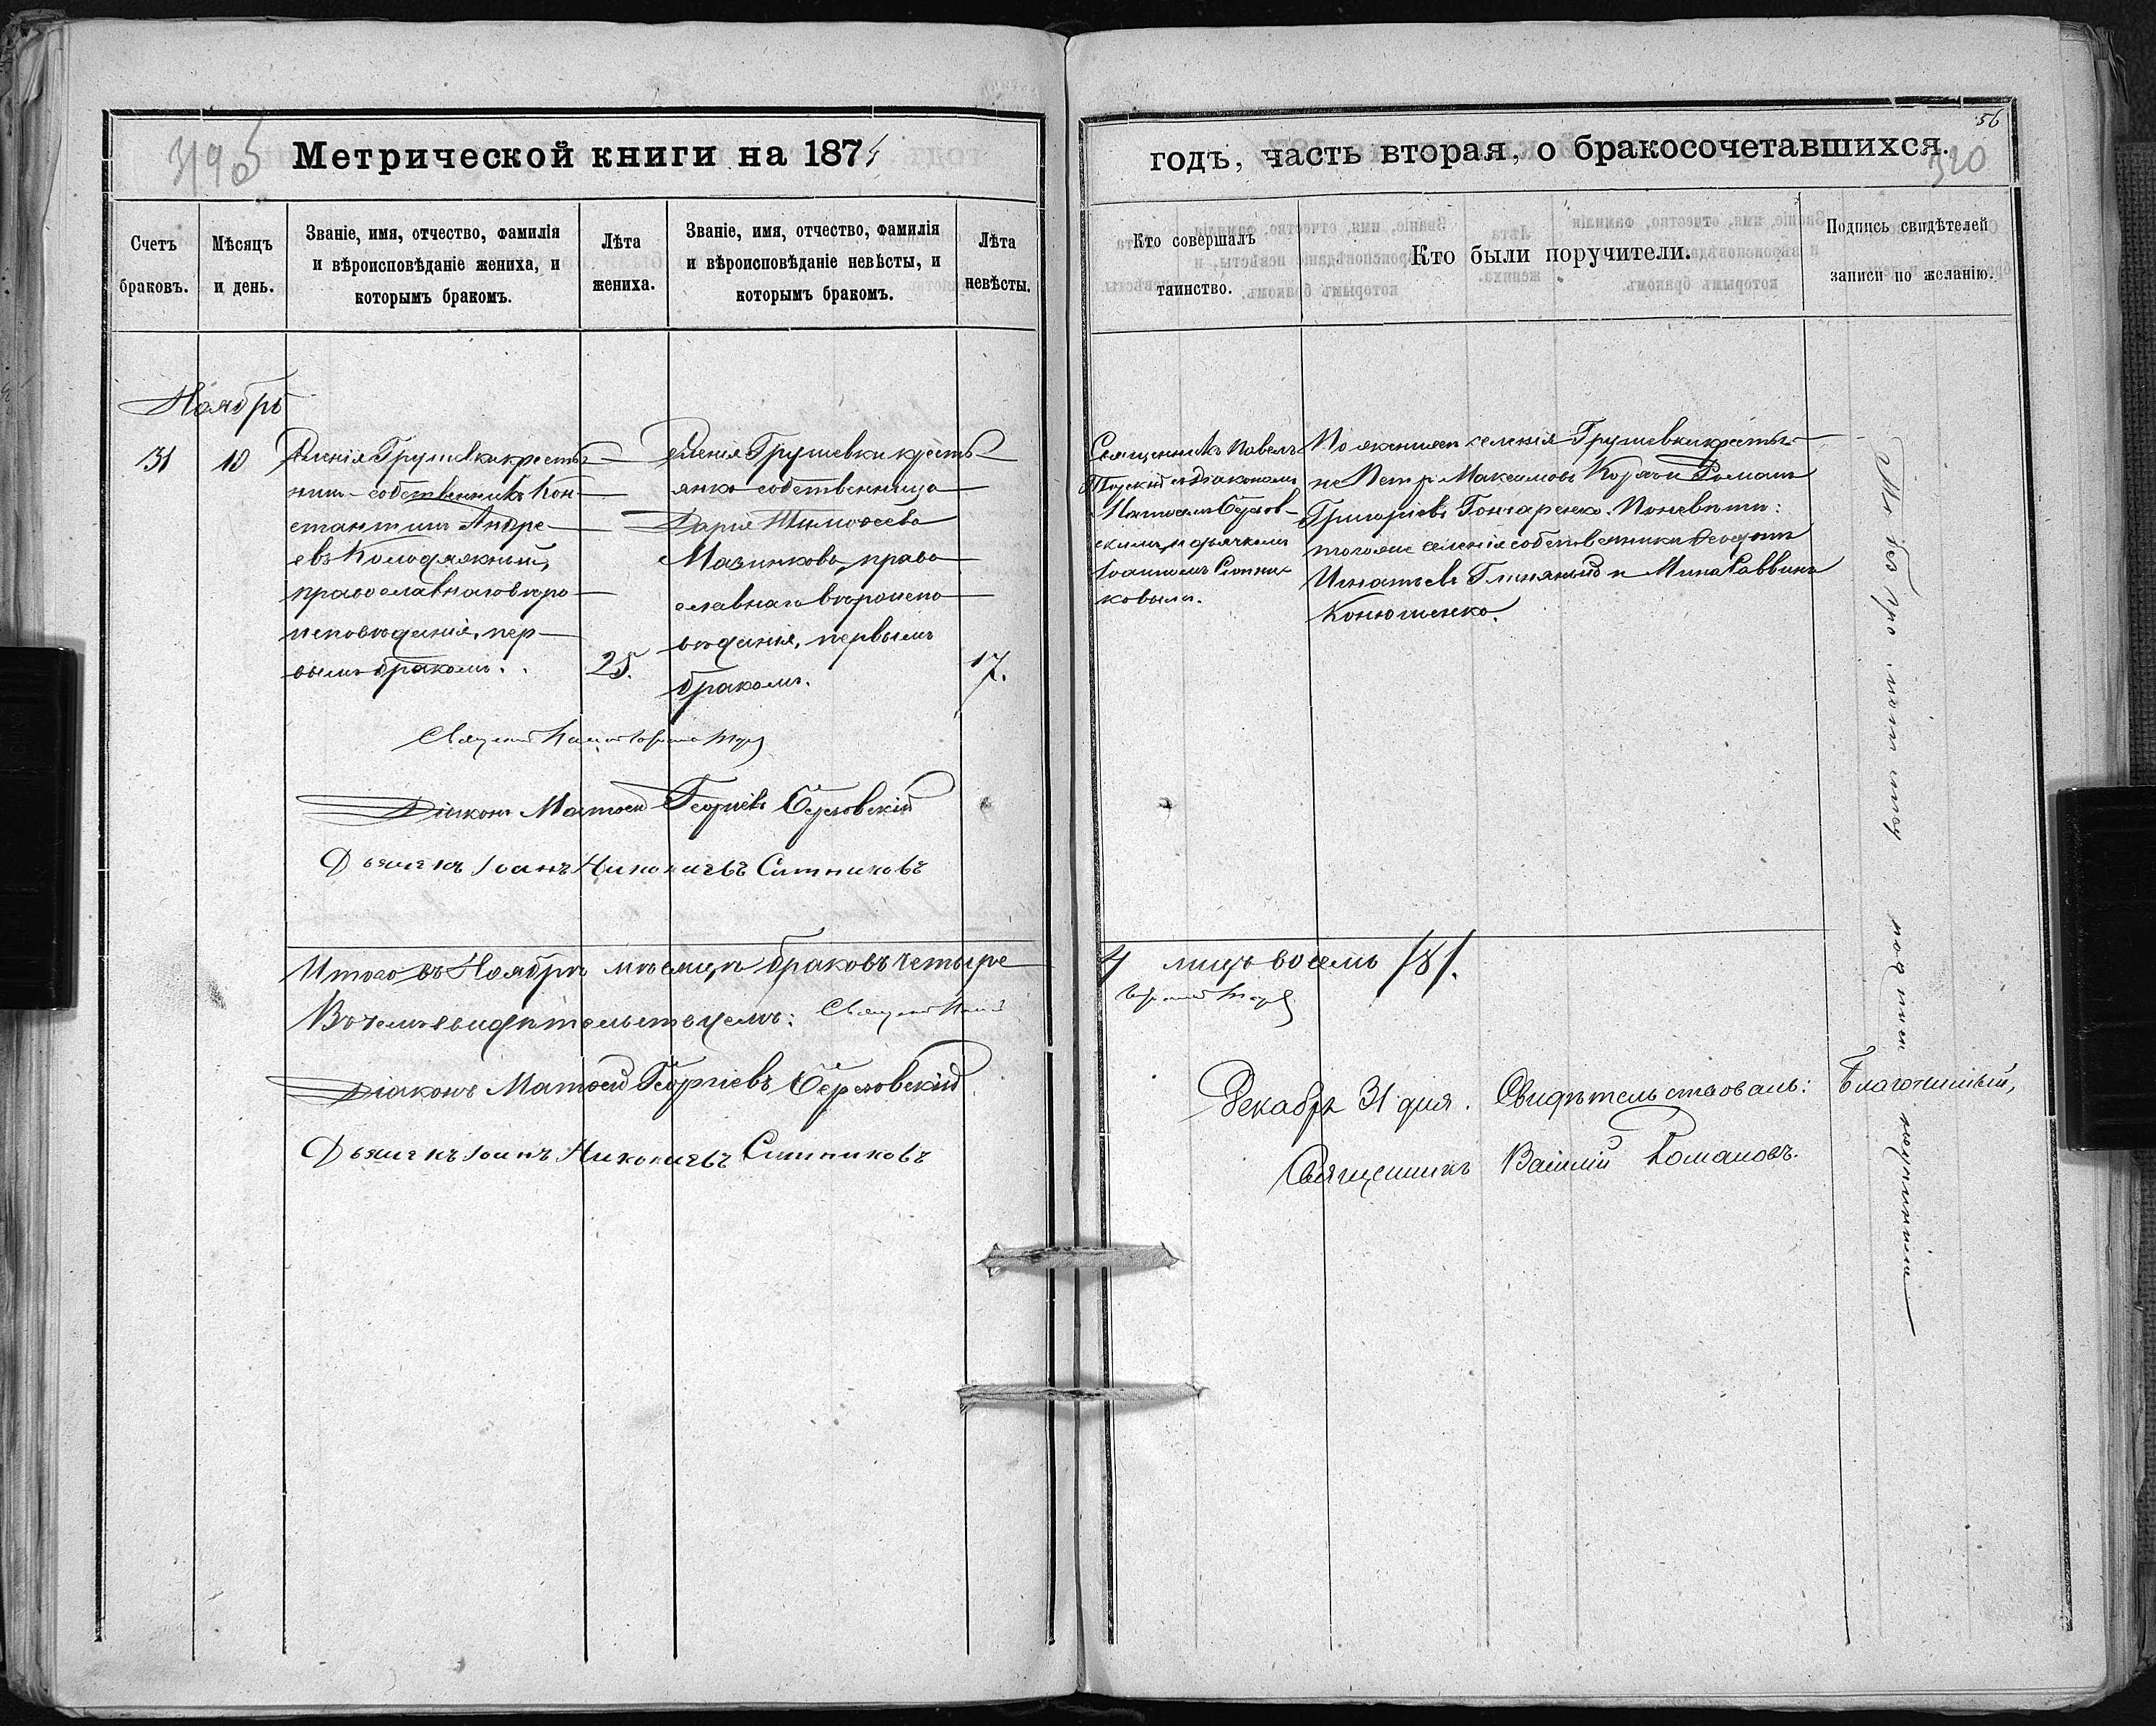 319об
Метрической книги на 1874
Счетъ браковъ.
Мѣсяцъ и день.
Званіе, имя, отчество, фамилія
и вѣроисповѣданіе жениха, и
которымъ бракомъ.
Лѣта жениха.
Званіе, имя, отчество, фамилія
и вѣроисповѣданіе невѣсты, и
которымъ бракомъ.
Лѣта невѣсты.
Ноябрь
31
10
Селенія Грушевки кресть-
нинъ-собственникъ Кон-
стантинъ Андре-
евъ Колодяжный,
православнаго вѣро
исповѣданія, пер-
вымъ бракомъ.
25.
Селенія Грушевки кресть-
янка собственница
Дарія Тимоѳеева
Мазинкова, право
славнаго вѣроиспо
вѣданія, первымъ
бракомъ.
17.
Діаконъ Матѳей Георгіевъ Серговскій
Дьячекъ Іоанъ Никоничевъ Ситниковъ
Итого въ Ноябрѣ мѣсяцѣ браковъ четыре
Въ чемъ свидѣтельствуемъ:
Діаконъ Матѳей Георгіевъ Серговскій
Дьячекъ Іоанъ Никоничевъ Ситниковъ
56
320
годъ, часть вторая, о бракосочетавшихся.
Кто совершалъ
таинство.
Кто были поручители.
Подпись свидѣтелей
записи по желанію.
Священникъ Павелъ
Торскій съ діакономъ
Матѳеемъ Сергов-
скимъ и дьячкомъ
Іоанномъ Ситни-
ковымъ.
По женихѣ селенія Грушевки крестья-
не Петръ Максимовъ Козачи Романъ
Григоріевъ Гончаренко. По невѣстѣ:
того же селенія собственники Ѳеодотъ
Игнатьевъ Глиняный и Мина Саввинъ
Конюшенко.
4 лицъ восемь /8/.
Декабря 31 дня. Свидѣтельствовалъ: Благочинный,
Священникъ Василій Романовъ.